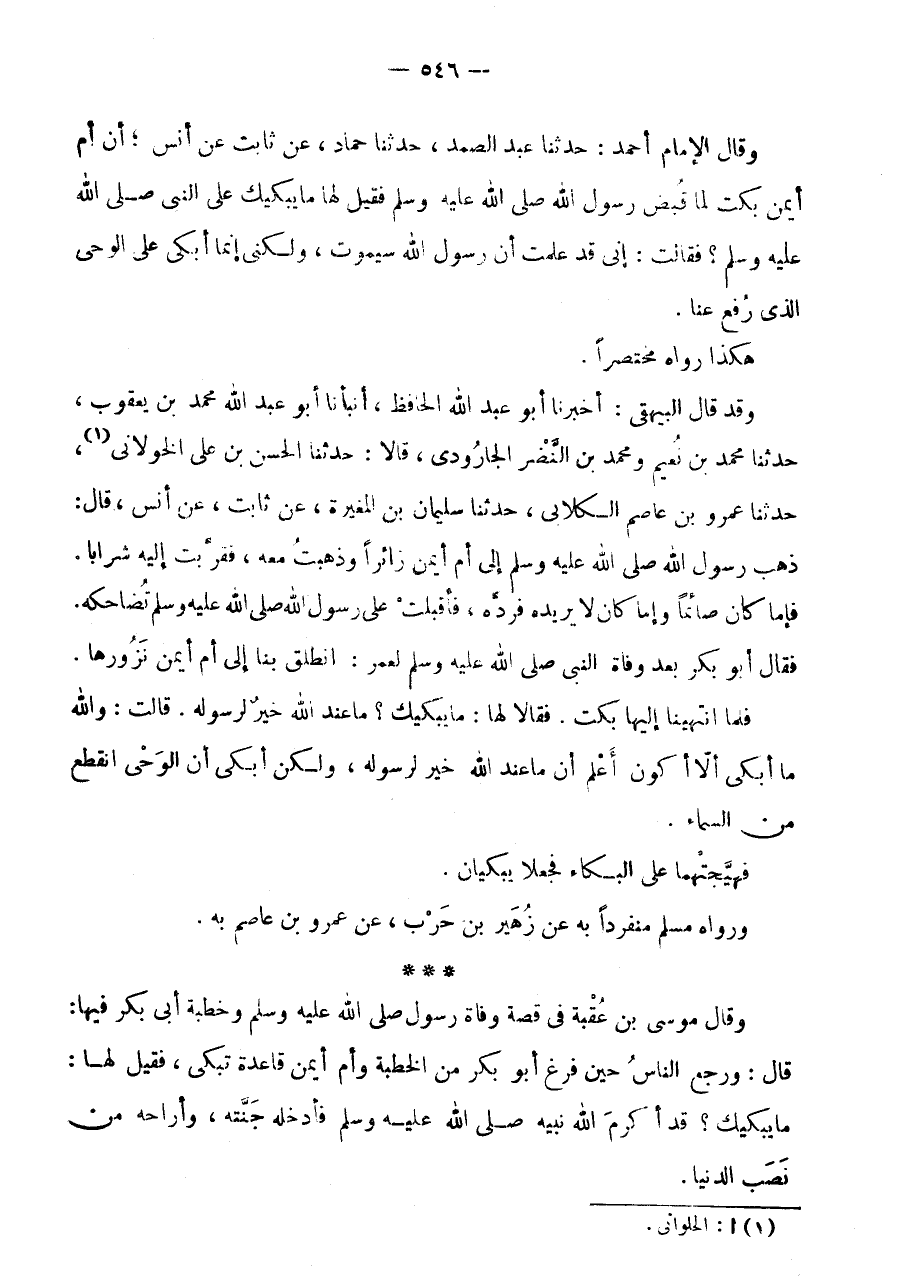 -- ٥٤٦ —
وقال الإمام أحمد : حدثنا عبد الصمد ، حدثنا حماد ، عن ثابت عن أنس ؛ أن أم
أيمن بكت لما قُبض رسول الله صلى الله عليه وسلم فقيل لها مايبكيك على النبى صلى الله
عليه وسلم ؟ فقالت : إنى قد علمت أن رسول الله سيموت ، ولكنى إنما أبكى على الوحى
الذى رُفع عنا .
هكذا رواه مختصراً .
وقد قال البيهقى : أخبرنا أبو عبد الله الحافظ ، أنبأنا أبو عبد الله محمد بن يعقوب ،
حدثنا محمد بن نُعيم ومحمد بن النَّضْر الجارُودى ، قالا : حدثنا الحسن بن على الخولانى(١) ،
حدثنا عمرو بن عاصم الكلابى ، حدثنا سليمان بن المغيرة ، عن ثابت ، عن أنس ، قال:
ذهب رسول الله صلى الله عليه وسلم إلى أم أيمن زائراً وذهبتُ معه ، فقرَّبت إليه شرابا .
فإما كان صائماً وإما كان لا يريده فردَّه ، فأقبلتْ على رسول الله صلى الله عليه وسلم تُضاحكه.
فقال أبو بكر بعد وفاة النبى صلى الله عليه وسلم لعمر : انطلق بنا إلى أم أيمن نَزُورها .
فلما انتهينا إليها بكت . فقالا لها : مايبكيك ؟ ماعند الله خيرٌ لرسوله . قالت : والله
ما أبكى ألّا أكون أَعْلم أن ماعند الله خير لرسوله ، ولكن أبكى أن الوَحْى انقطع
من السماء .
فهيَّجتْهما على البكاء فجعلا يبكيان .
ورواه مسلم منفرداً به عن زُهَير بن حَرْب ، عن عمرو بن عاصم به .
* * *
وقال موسى بن عُقْبة فى قصة وفاة رسول صلى الله عليه وسلم وخطبة أبى بكر فيها:
قال : ورجع الناسُ حين فرغ أبو بكر من الخطبة وأم أيمن قاعدة تبكى ، فقيل لها :
مايبكيك ؟ قد أكرمَ الله نبيه صلى الله عليه وسلم فأدخله جَنَّته ، وأراحه من
نَصَب الدنيا .
(١) ا : الحلوانى .